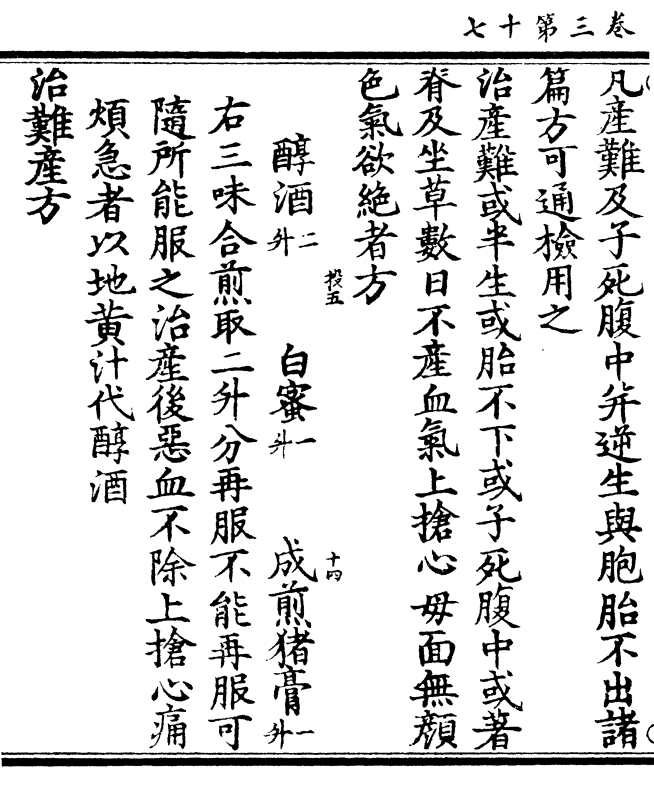 卷三第十七
凡產難及子死腹中并逆生與胞胎不出諸
篇方可通檢用之
治產難或半生或胎不下或子死腹中或著
脊及坐草數日不產血氣上搶心毋面無顏
色氣欲絕者方
投五
十四
醇酒二升 白蜜一升 成煎猪膏一升
右三味合煎取二升分再服不能再服可
隨所能服之治產後惡血不除上搶心痛
煩急者以地黃汁代醇酒
治難產方